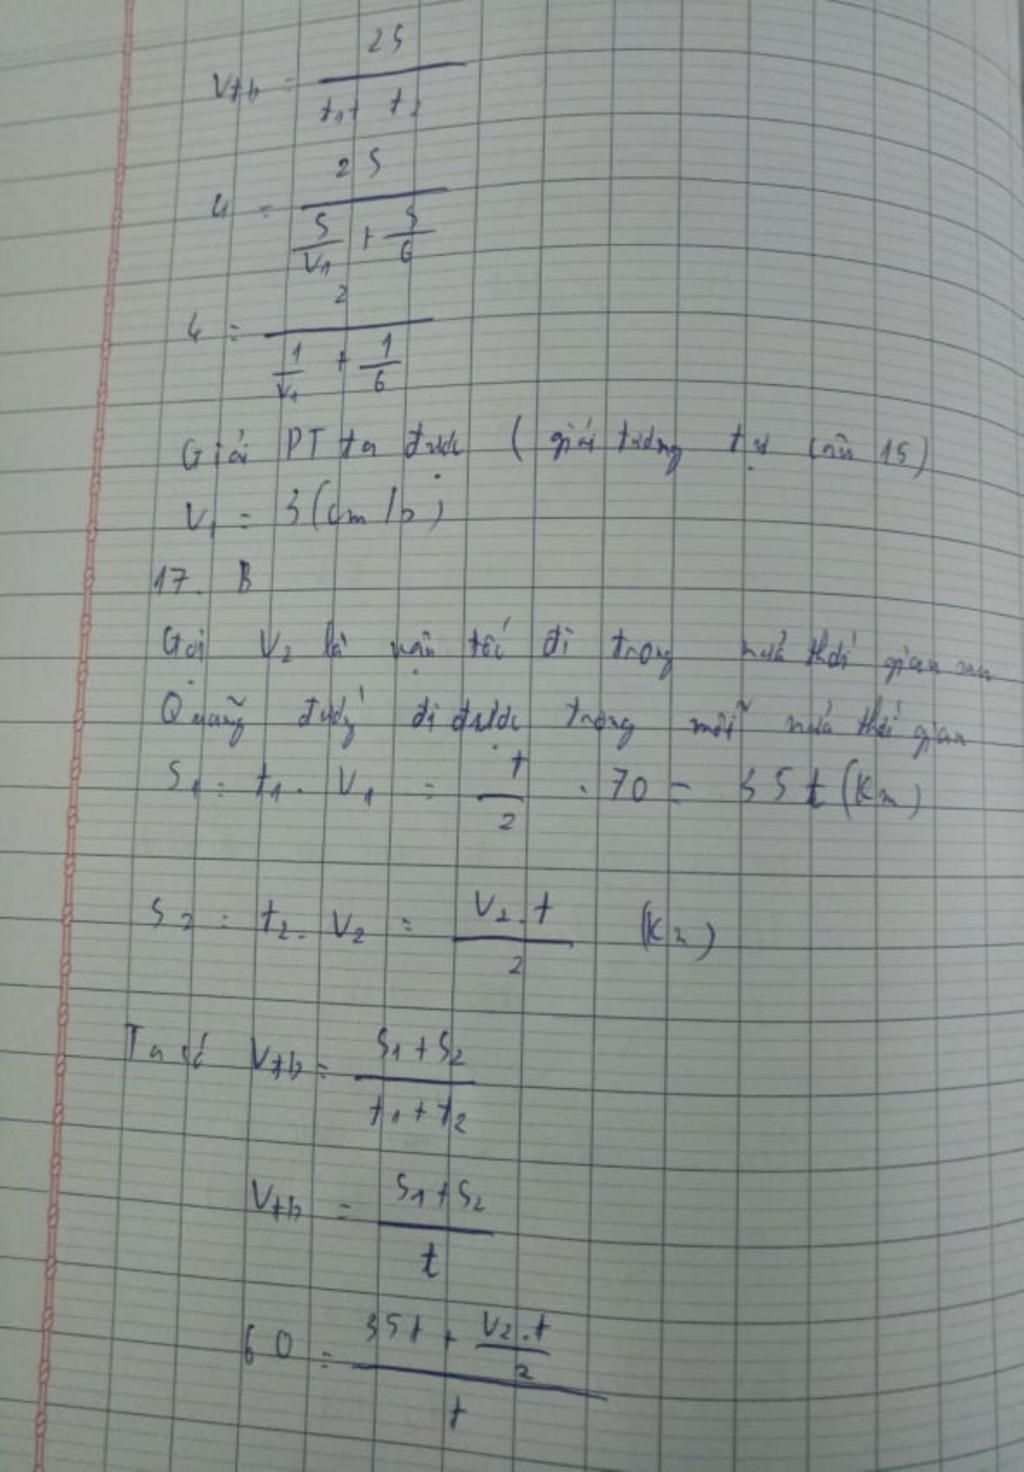 Vtb = 2S / (t1 + t2)
4 = 2S / (S/V1 + S/6)
4 = 2 / (1/V1 + 1/6)
Giải PT ta được (giải tương tự câu 15)
V1 = 3 (cm/s)
17. B
Gọi V2 là vận tốc đi trong nửa thời gian sau
Quãng đường đi được trong mỗi nửa thời gian
S1 = t1 . V1 = t/2 . 70 = 35t (Km)
S2 = t2 . V2 = V2.t / 2 (Km)
Ta có Vtb = (S1 + S2) / (t1 + t2)
Vtb = (S1 + S2) / t
60 = (35t + V2.t/2) / t